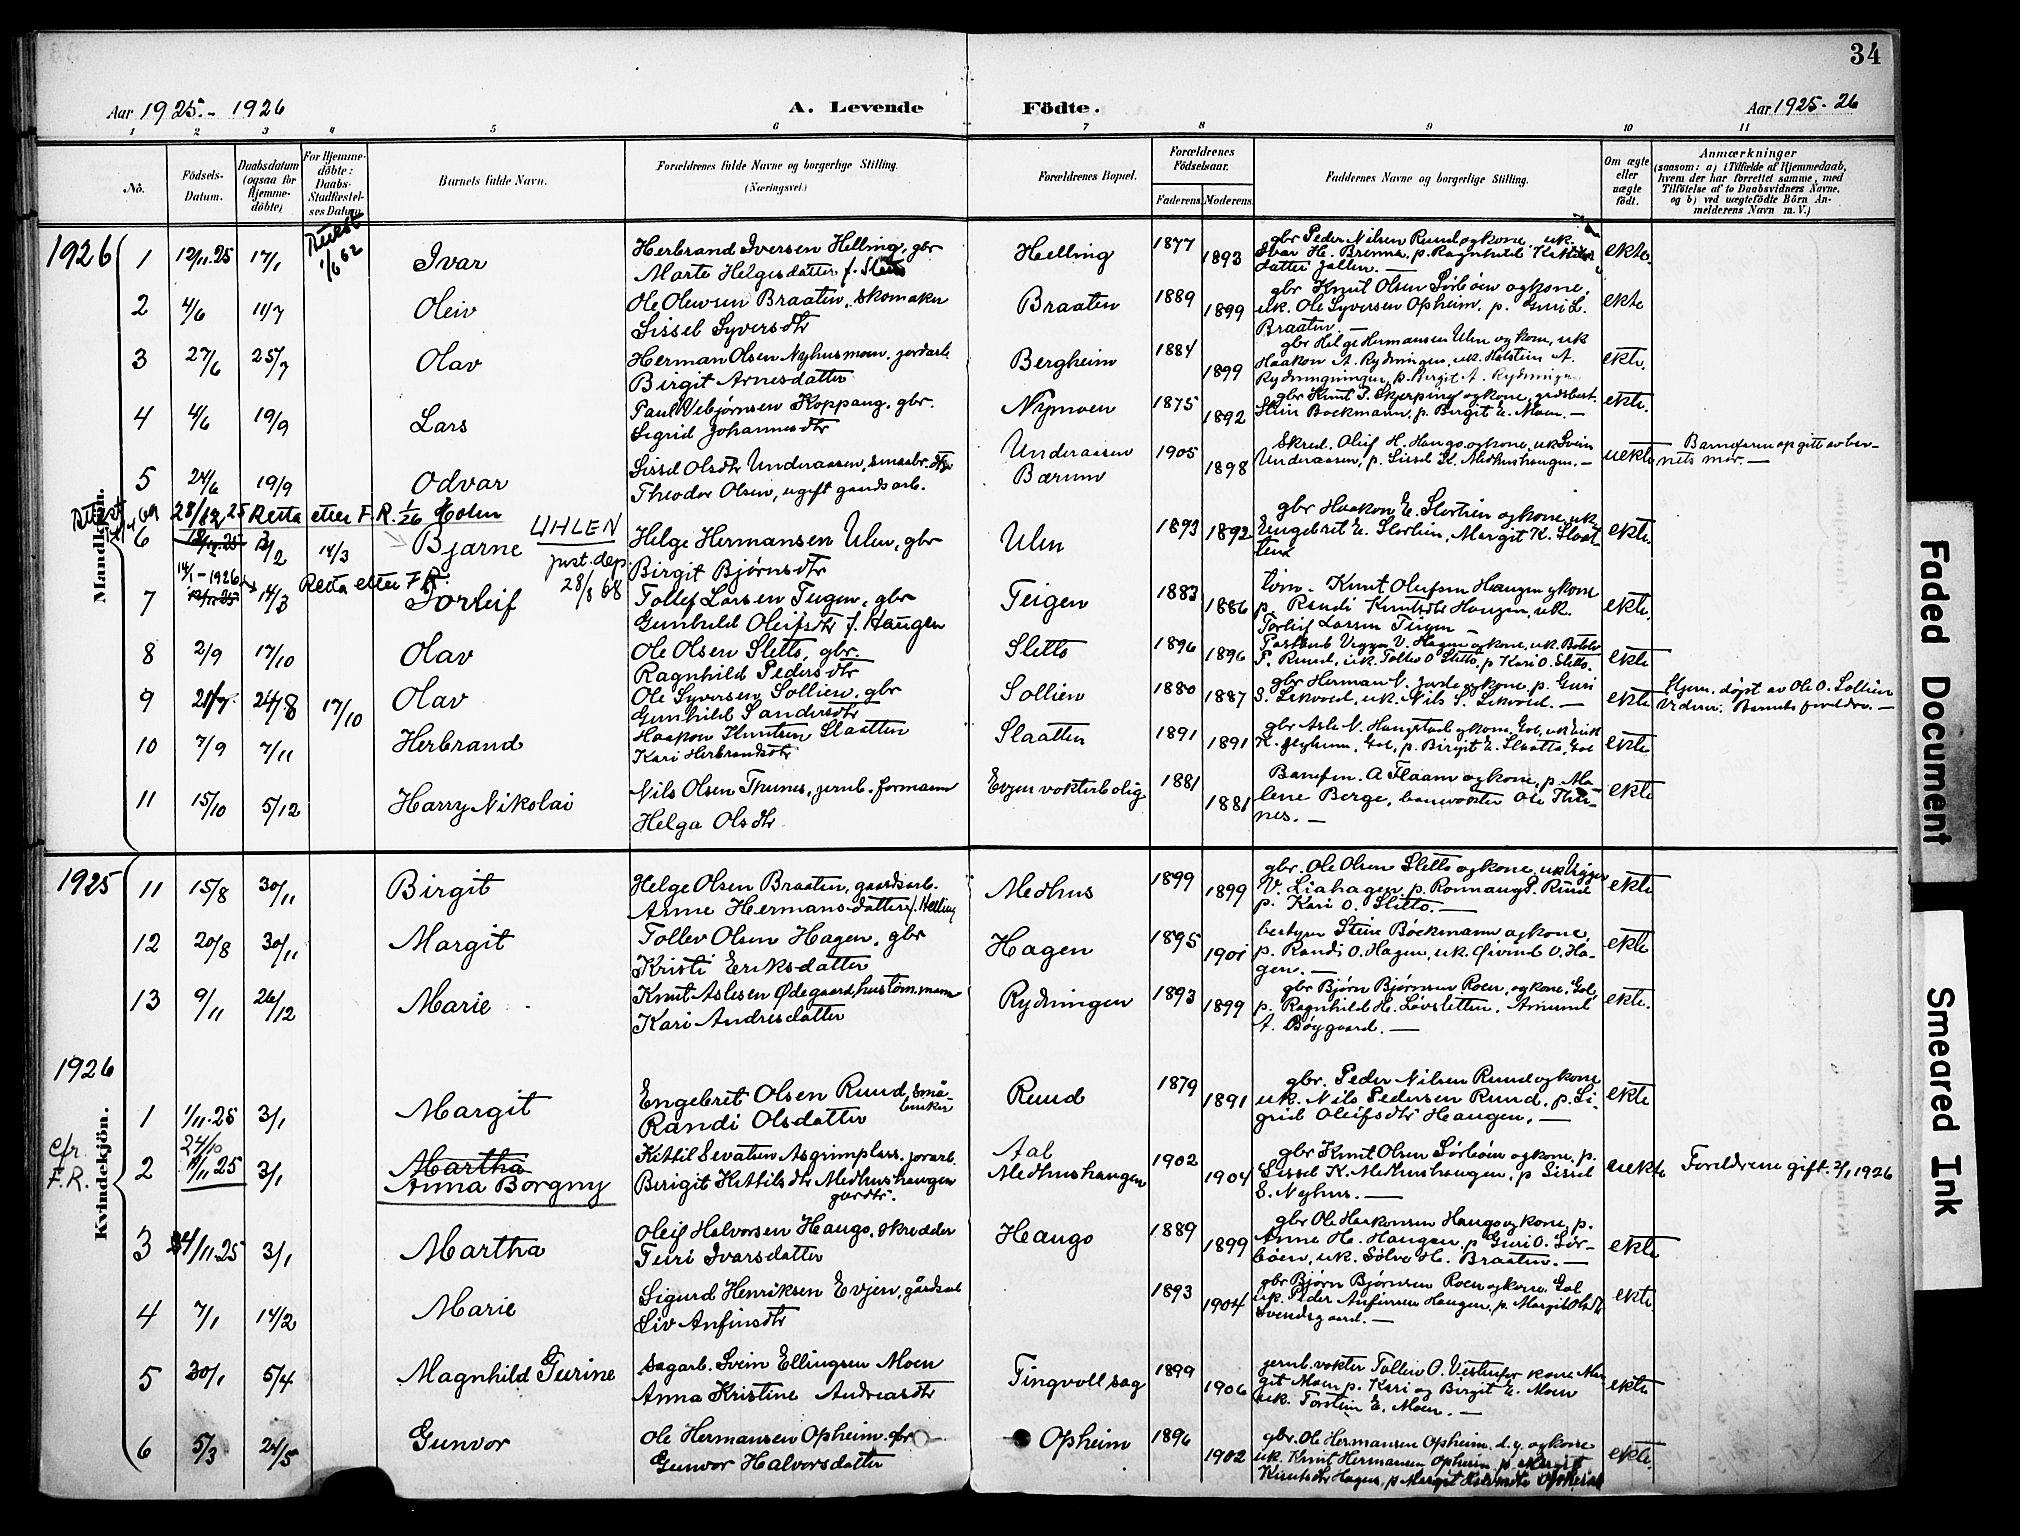 34
Aar 1925 - 1926
A. Levende Födte.
Aar 1925-26
1 2 3 4 5 6 7 8 9 10 11
No.
Födsels-Datum.
Daabsdatum (ogsaa for Hjemme-döbte)
For Hjemme-döbte: Daabs-Stadfæstel-ses Datum.
Barnets fulde Navn.
Forældrenes fulde Navne og borgerlige Stilling. (Næringsvei.)
Forældrenes Bopæl.
Forældrenes Födselsaar.
Faderens Moderens
Faddernes Navne og borgerlige Stilling.
Om ægte eller uægte födt.
Anmærkninger
(saasom: a) i Tilfælde af Hjemmedaab, hvem der har forrettet samme, med Tilföielse af to Daabsvidners Navne, og b) ved uægtefödte Börn An-melderens Navn m. V.)
Mandkjön.
1926
1 12/11.25 17/1 Attest 1/6 62 Ivar
Herbrand Iversen Helling, gbr
Marte Helgesdatter f.
Helling 1877 1893
gbr Peder Nilsen Ruud og kone, uk.
Ivar H. Brenna, p. Ragnhild Kittils
datter Jallen. —
ekte.
2 4/6 11/7 Oleiv
Ole Olewsen Braaten, skomaker
Sissel Syversdtr
Braaten 1889 1899
gbr Knut Olsen Sørbøen og kone,
uk. Ole Syversen Opheim, p. Guri L.
Braaten. —
ekte
3 27/6 25/7 Olav
Herman Olsen Nyhusmoen, jordarb.
Birgit Arnesdatter
Bergheim 1884 1899
gbr Helge Hermansen Ulen og kone, uk
Haakon A. Rydningen, uk. Halstein A.
Rydningen, p. Birgit A. Rydningen
ekte,
4 4/6 19/9 Lars
Paul Vebjørnsen Koppang, gbr.
Sigrid Johannesdtr
Nymoen 1875 1892
gbr Knut P. Skjerping og kone, gaardsbest.
Stein Boekmann, p. Birgit E. Moen. —
ekte.
5 24/6 19/9 Odvar
Sissel Olsdtr Underaasen, smaabr.dtr
Theodor Olsen, ugift gaardsarb.
Underaasen
Bærum
1905 1898
Skred. Oleif H. Haugo og kone, uk Svein
Underaasen, p. Sissel Medhushaugen. —
uekte
Barnefaren opgitt av bar-
nets mor. —
28/12 25 Retta etter F.R. 1/26 Holm
6 18/12.25 2/2 14/3 Bjarne UHLEN
just. dep. 28/8 68
Helge Hermansen Ulen, gbr
Birgit Bjørnsdtr
Ulen 1893 1892
gbr Haakon E. Slorlien og kone, uk
Engebrit E. Slorlien, Margit K. Slaat-
ten
ekte.
14/1 - 1926 Retta etter F.R.
7 14/3 Torleif
Tollef Larsen Teigen, gbr
Gunhild Oleifsdtr f. Haugen
Teigen 1883 1886
tøm. Knut Oleifsen Haugen og kone
p. Randi Knutsdtr Haugen, uk.
Torleif Larsen Teigen —
ekte.
8 2/9 17/10 Olav
Ole Olsen Sletto, gbr.
Ragnhild Pedersdtr
Sletto 1896 1896
Postbud Vegger V. Hagen og kone, uk. Botolv
P. Ruud, uk. Tollev O. Sletto, p Kari O. Sletto.
ekte
9 21/7 24/8 17/10 Olav
Ole Syversen Sollien, gbr
Gunhild Sandersdtr
Sollien 1880 1887
gbr Herman V. Jorde og kone, p. Guri
S. Lekvold, uk. Nils S. Lekvold. —
ekte
Hjem. døpt av Ole O. Sollien
Vidner: Barnets foreldre. —
10 7/9 7/11 Herbrand
Haakon Knutsen Slaatten
Kari Herbrandsdtr
Slaatten 1891 1891
gbr Asle N. Haugstad og kone, Gol, uk Eirik
K. Jeglum, Gol, p. Birgit E. Slaatto, Gol
ekte
11 15/10 5/12 Harry Nikolai
Nils Olsen Thunes, jernb.formann
Helga Olsdtr.
Evjen vokterbolig 1881 1881
Banefm. A Flaam og kone, p. Ma-
lene Berge, banevokter Ole Thu-
nes. —
ekte
1925
11 15/8 30/11 Birgit
Helge Olsen Braaten, gaardsarb.
Anne Hermansdatter f. Helling
Medhus 1899 1899
gbr. Ole Olsen Sletto og kone, uk Vegger
V. Liahagen, p. Ronnaug P. Ruud
p. Kari O. Sletto. —
ekte
12 20/8 30/11 Margit
Tollev Olsen Hagen, gbr
Kristi Eriksdatter
Hagen 1895 1901
bestyrer Stein Bøckmann og kone,
p. Randi O. Hagen, uk. Øivind O. Ha-
gen. —
ekte
13 9/11 26/12 Marie
Knut Aslesen Ødegaard, hustøm.mann
Kari Andresdatter
Rydningen 1893 1899
gbr Bjørn Bjørnsen Roen, og kone, Gol,
p. Ragnhild H. Løvsletten, Amund
A. Bøygaard. —
ekte.
Kvindekjön.
1926
1 1/11.25 3/1 Margit
Engebret Olsen Ruud, små-
bruker
Randi Olsdatter
Ruud 1879 1891
gbr. Peder Nilsen Ruud og kone
uk. Nils Pedersen Ruud, p. Si-
grid Oleifsdtr Haugen, —
ekte
cfr F.R.
24/10
2 11/11 25 3/1 Martha
Anna Borgny
Kittil Sevatsen Asgrimplass, jorarb.
Birigit Kittilsdtr Medhushaugen
gardtr.
Aal
Medhushaugen
1902 1904
gbr Knut Olsen Sørbøen og kone, p.
Sissel K. Medhushaugen, p Sissel
S. Nyhus. —
uekte
Foreldrene gift. 2/1 1926
3 24/11.25 3/1 Martha
Oleif Halvorsen Haugo, skredder
Turi Ivarsdatter
Haugo 1889 1899
gbr Ole Haakonsen Haugo og kone, p.
Anne H. Haugen, p Guri O. Sør-
bøen, uk. Sølve H. Braaten. —
ekte
4 7/1 14/2 Marie
Sigurd Henriksen Evjen, gårdsarb
Liv Anfinsdtr
1893 1904
gbr Bjørn Bjørnsen Roen og kone Gol
uk. Peder Anfinsen Haugen, p. Margit
Svendsgaard. —
ekte.
5 30/1 5/4 Magnhild Gurine
Sagarb. Svein Ellingsen Moen
Anna Kristine Andreasdtr
Tingvoll sag 1899 1906
jernb.vokter Tolleiv O. Vestenfor kone Mar
git Moen p. Kari og Birgit E. Moen
uk. Torstein E. Moen. —
ekte
6 5/3 24/5 Gunvor
Ole Hermansen Opheim. gbr
Gunvor Halvorsdatter
Opheim 1896 1902
gbr. Ole Hermansen Opheim. d.y. og kone
uk. Knut Hermansen Opheim, p. Margit
Knutsdtr Hagen, p Margit Opheim
ekte.
Faded Document
Smeared Ink